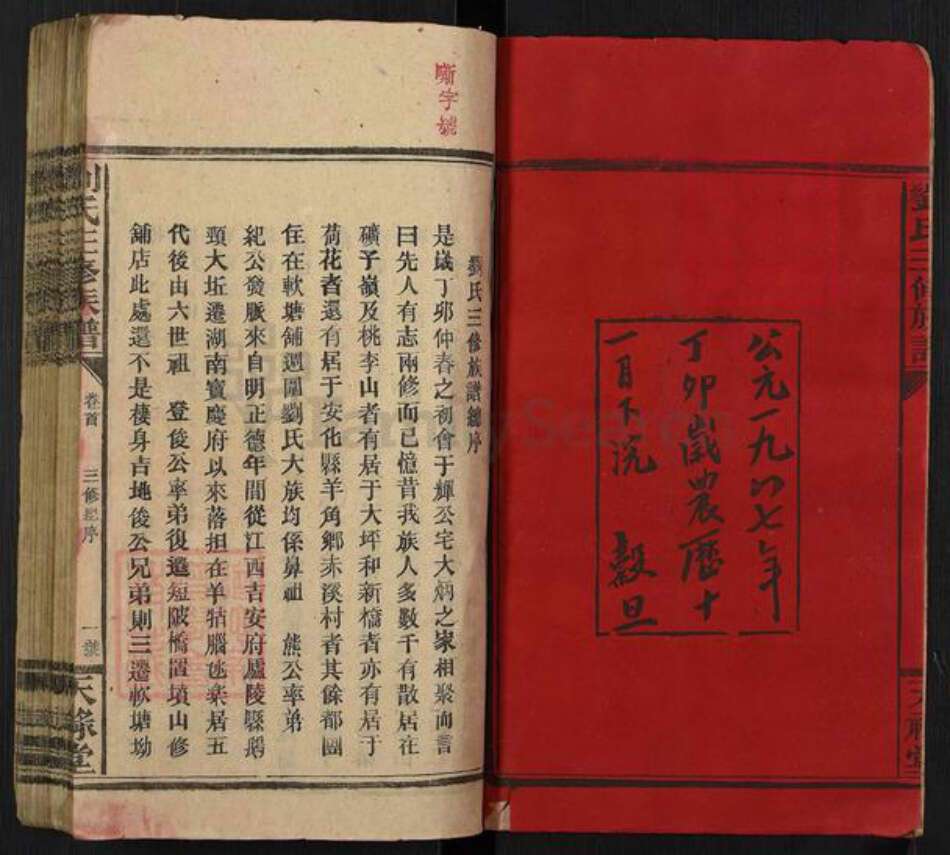 劉氏三修族譜
公元一九八七年
丁卯歲農歷十
一月下浣 穀旦
天祿堂
嘶字號
劉氏三修族譜總序
是歲丁卯仲春之初會于輝公宅大炳之家相聚而言
曰先人有志兩修而已憶昔我族人多數千有散居在
礦子嶺及桃李山者有居于大坪和新橋者亦有居于
荷花者還有居于安化縣羊角鄉赤溪村者其餘都團
住在軟塘舖週圍劉氏大族均係鼻祖 熊公率弟
紀公發脈來自明正德年間從江西吉安府廬陵縣鵝
頸大坵遷湖南寶慶府以來落担在羊牯腦 樂居五
代後由六世祖 登俊公率弟復遷短陂橋置墳山修
舖店此處還不是棲身吉地後公兄弟則三遷軟塘坳
劉氏三修族譜
卷首
三修總序
一號
天祿堂
FamilySearch